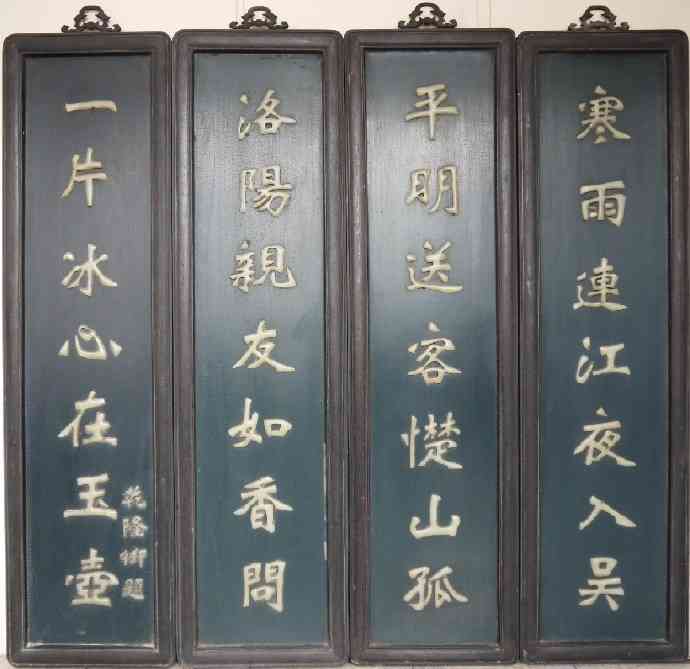 寒雨連江夜入吴
平明送客憷山孤
洛陽親友如香問
一片冰心在玉壺
乾隆御題